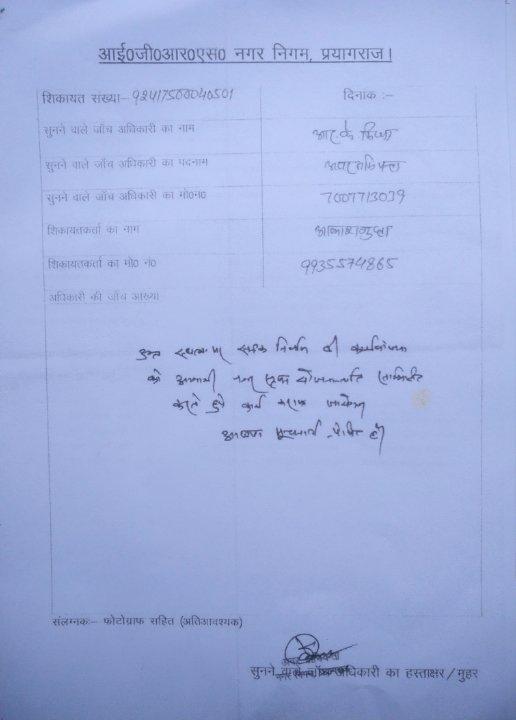 आई0जी0आर0एस0 नगर निगम, प्रयागराज।
शिकायत संख्या– 92417500040501 दिनाक :–
सुनने वाले जाँच अधिकारी का नाम आर के मिश्रा
सुनने वाले जाँच अधिकारी का पदनाम
सुनने वाले जाँच अधिकारी का मो0न0 7007713039
शिकायतकर्ता का नाम आकाश गुप्ता
शिकायतकर्ता का मो0 नं0 9935574865
अधिकारी की जाँच आख्या
उक्त स्थल पर सड़क निर्माण की कार्ययोजना
को आगामी
करते हुये कार्य कराया जायेगा
आख्या सूचनार्थ प्रेषित है।
संलग्नक:– फोटोग्राफ सहित (अतिआवश्यक)
सुनने वाले जाँच अधिकारी का हस्ताक्षर / मुहर